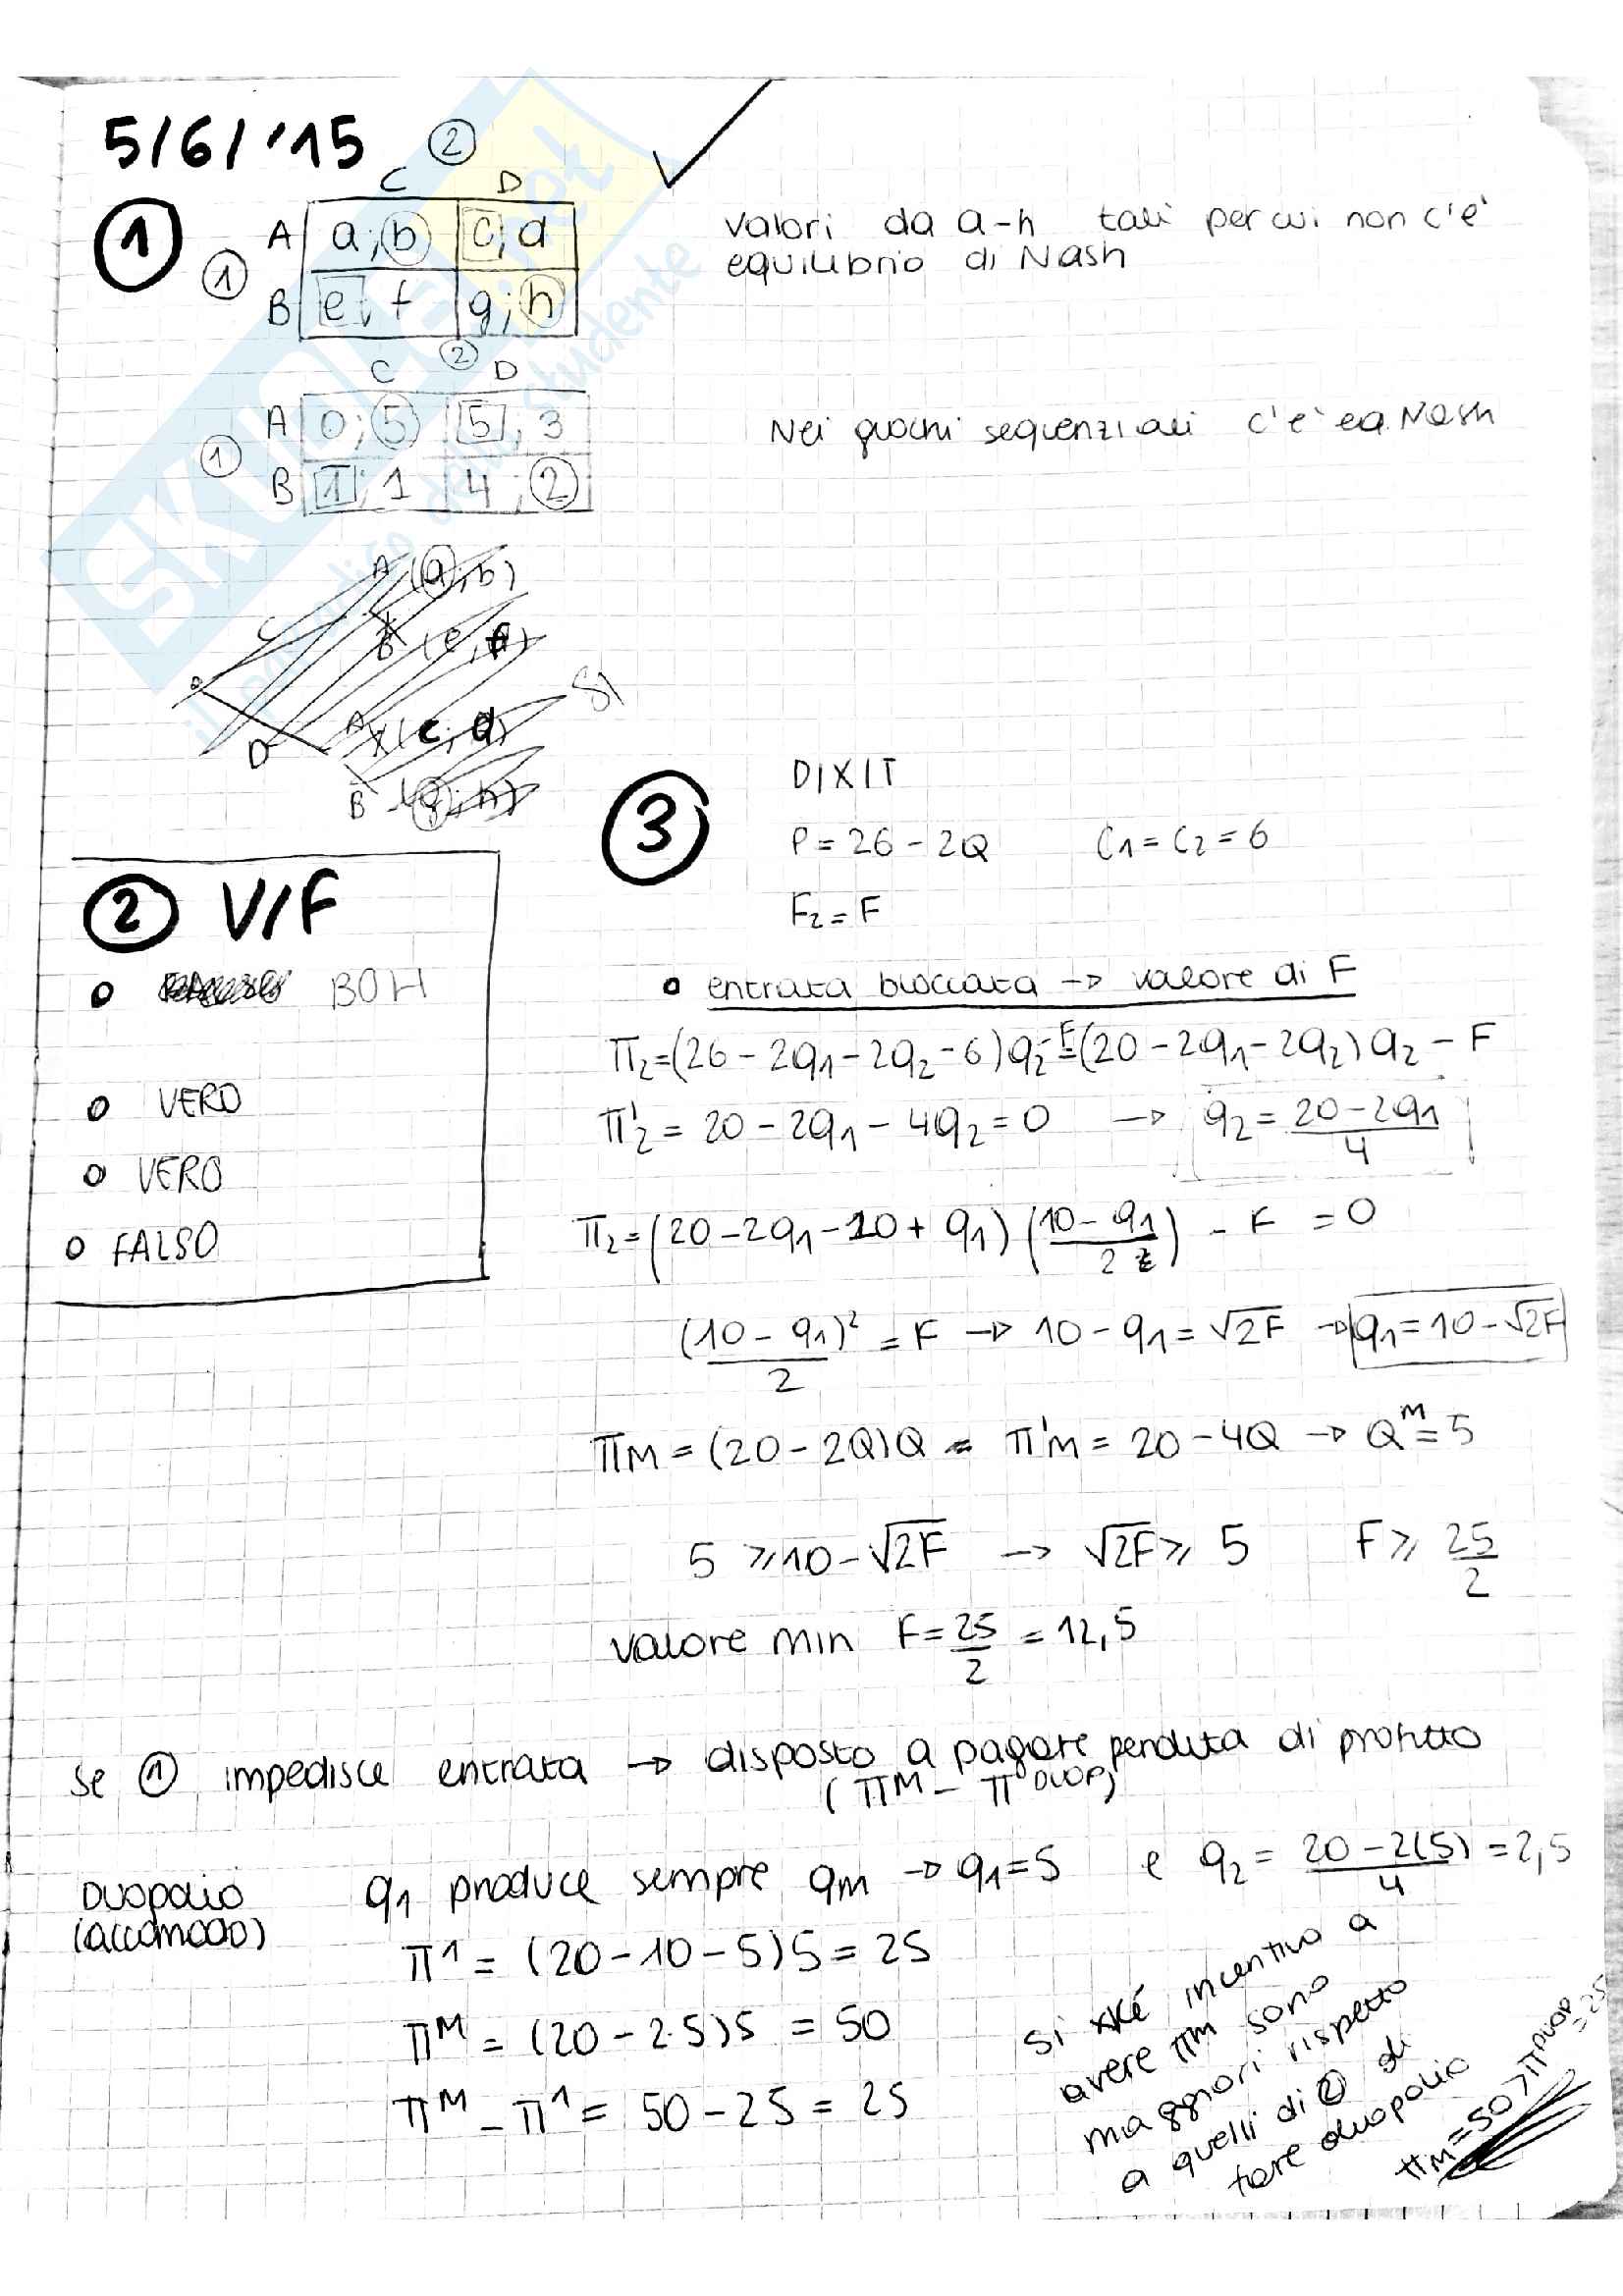 5/6/'15
②
C D
① A a;b c;d
① B e;f g;h
Valori da a-h tali per cui non c'è
equilibrio di Nash
C ② D
A 0;5 5;3
① B 1;1 4;2
Nei giochi sequenziali c'è eq. Nash
A (a;b)
C B (e,f)
SI
D A (c;d)
B (g;h)
② V/F
BOH
VERO
VERO
FALSO
③ DIXIT
P = 26 - 2Q C1 = C2 = 6
F2 = F
entrata bloccata → valore di F
π2=(26-2q1-2q2-6)q2-F=(20-2q1-2q2)q2-F
π'2 = 20-2q1-4q2=0 → q2=20-2q1/4
π2=(20-2q1-10+q1)(10-q1/2)-F=0
(10-q1)²/2=F → 10-q1=√2F → q1=10-√2F
πM=(20-2Q)Q = π'M=20-4Q → Q^M=5
5 ≥ 10-√2F → √2F ≥ 5 F ≥ 25/2
valore min F=25/2=12,5
Se ① impedisce entrata → disposto a pagare perdita di profitto
(π^M - π^DUOP)
DUOPOLIO (ACCOMODO) q1 produce sempre qM → q1=5 e q2=20-2(5)/4=2,5
π^1=(20-10-5)5=25
π^M=(20-2·5)5=50
π^M-π^1=50-25=25
Si xké incentivo a
avere πM sono
maggiori rispetto
a quelli di ② di
fare duopolio
πM=50>π^DUOP=25
SKUOLA.net